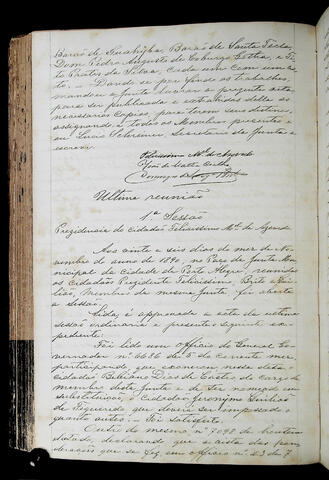 Barão de Guahyba, Barão de Santa Tecla,
Dom Pedro Augusto de Coburgo Gotha, e Ti-
to Prates da Silva, cada um com um vo-
to. — Dando-se por findo os trabalhos,
mandou a Junta lavrar a presente acta
para ser publicada e extrahidas della as
necessarias Copias, para terem seu destino,
assignando-a todos os Membros presentes e
eu Luiz Schreiner, Secretario da Junta a
escrevi.
Felicissimo M. de Azevedo
Ultima reunião
1ª Sessão
Presidencia do Cidadão Felicissimo Ml. de Azevedo
Aos vinte e seis dias do mez de No-
vembro do anno de 1890, no Paço da Junta Mu-
nicipal da Cidade de Porto Alegre, reunidos
os Cidadãos Presidente Felicissimo, Brito e
Membros da mesma Junta, foi aberta
a sessão.
Lida, é approvada a acta da ultima
sessão ordinaria e presente o seguinte ex-
pediente:
Foi lido um officio do General Go-
vernador nº 6686 de 5 do corrente mez
participando que exonerou nessa data o
cidadão Bibiano Dias de Castro do cargo de
membro desta Junta e de ter nomeado em
substituição, o Cidadão Jeronymo Simões
de Figueredo que deveria ser empossado o
quanto antes. — Foi satisfeito.
Outro do mesmo nº 7098 de
datado, declarando que á vista das pon-
derações que se fez em officio nº 23 de 7